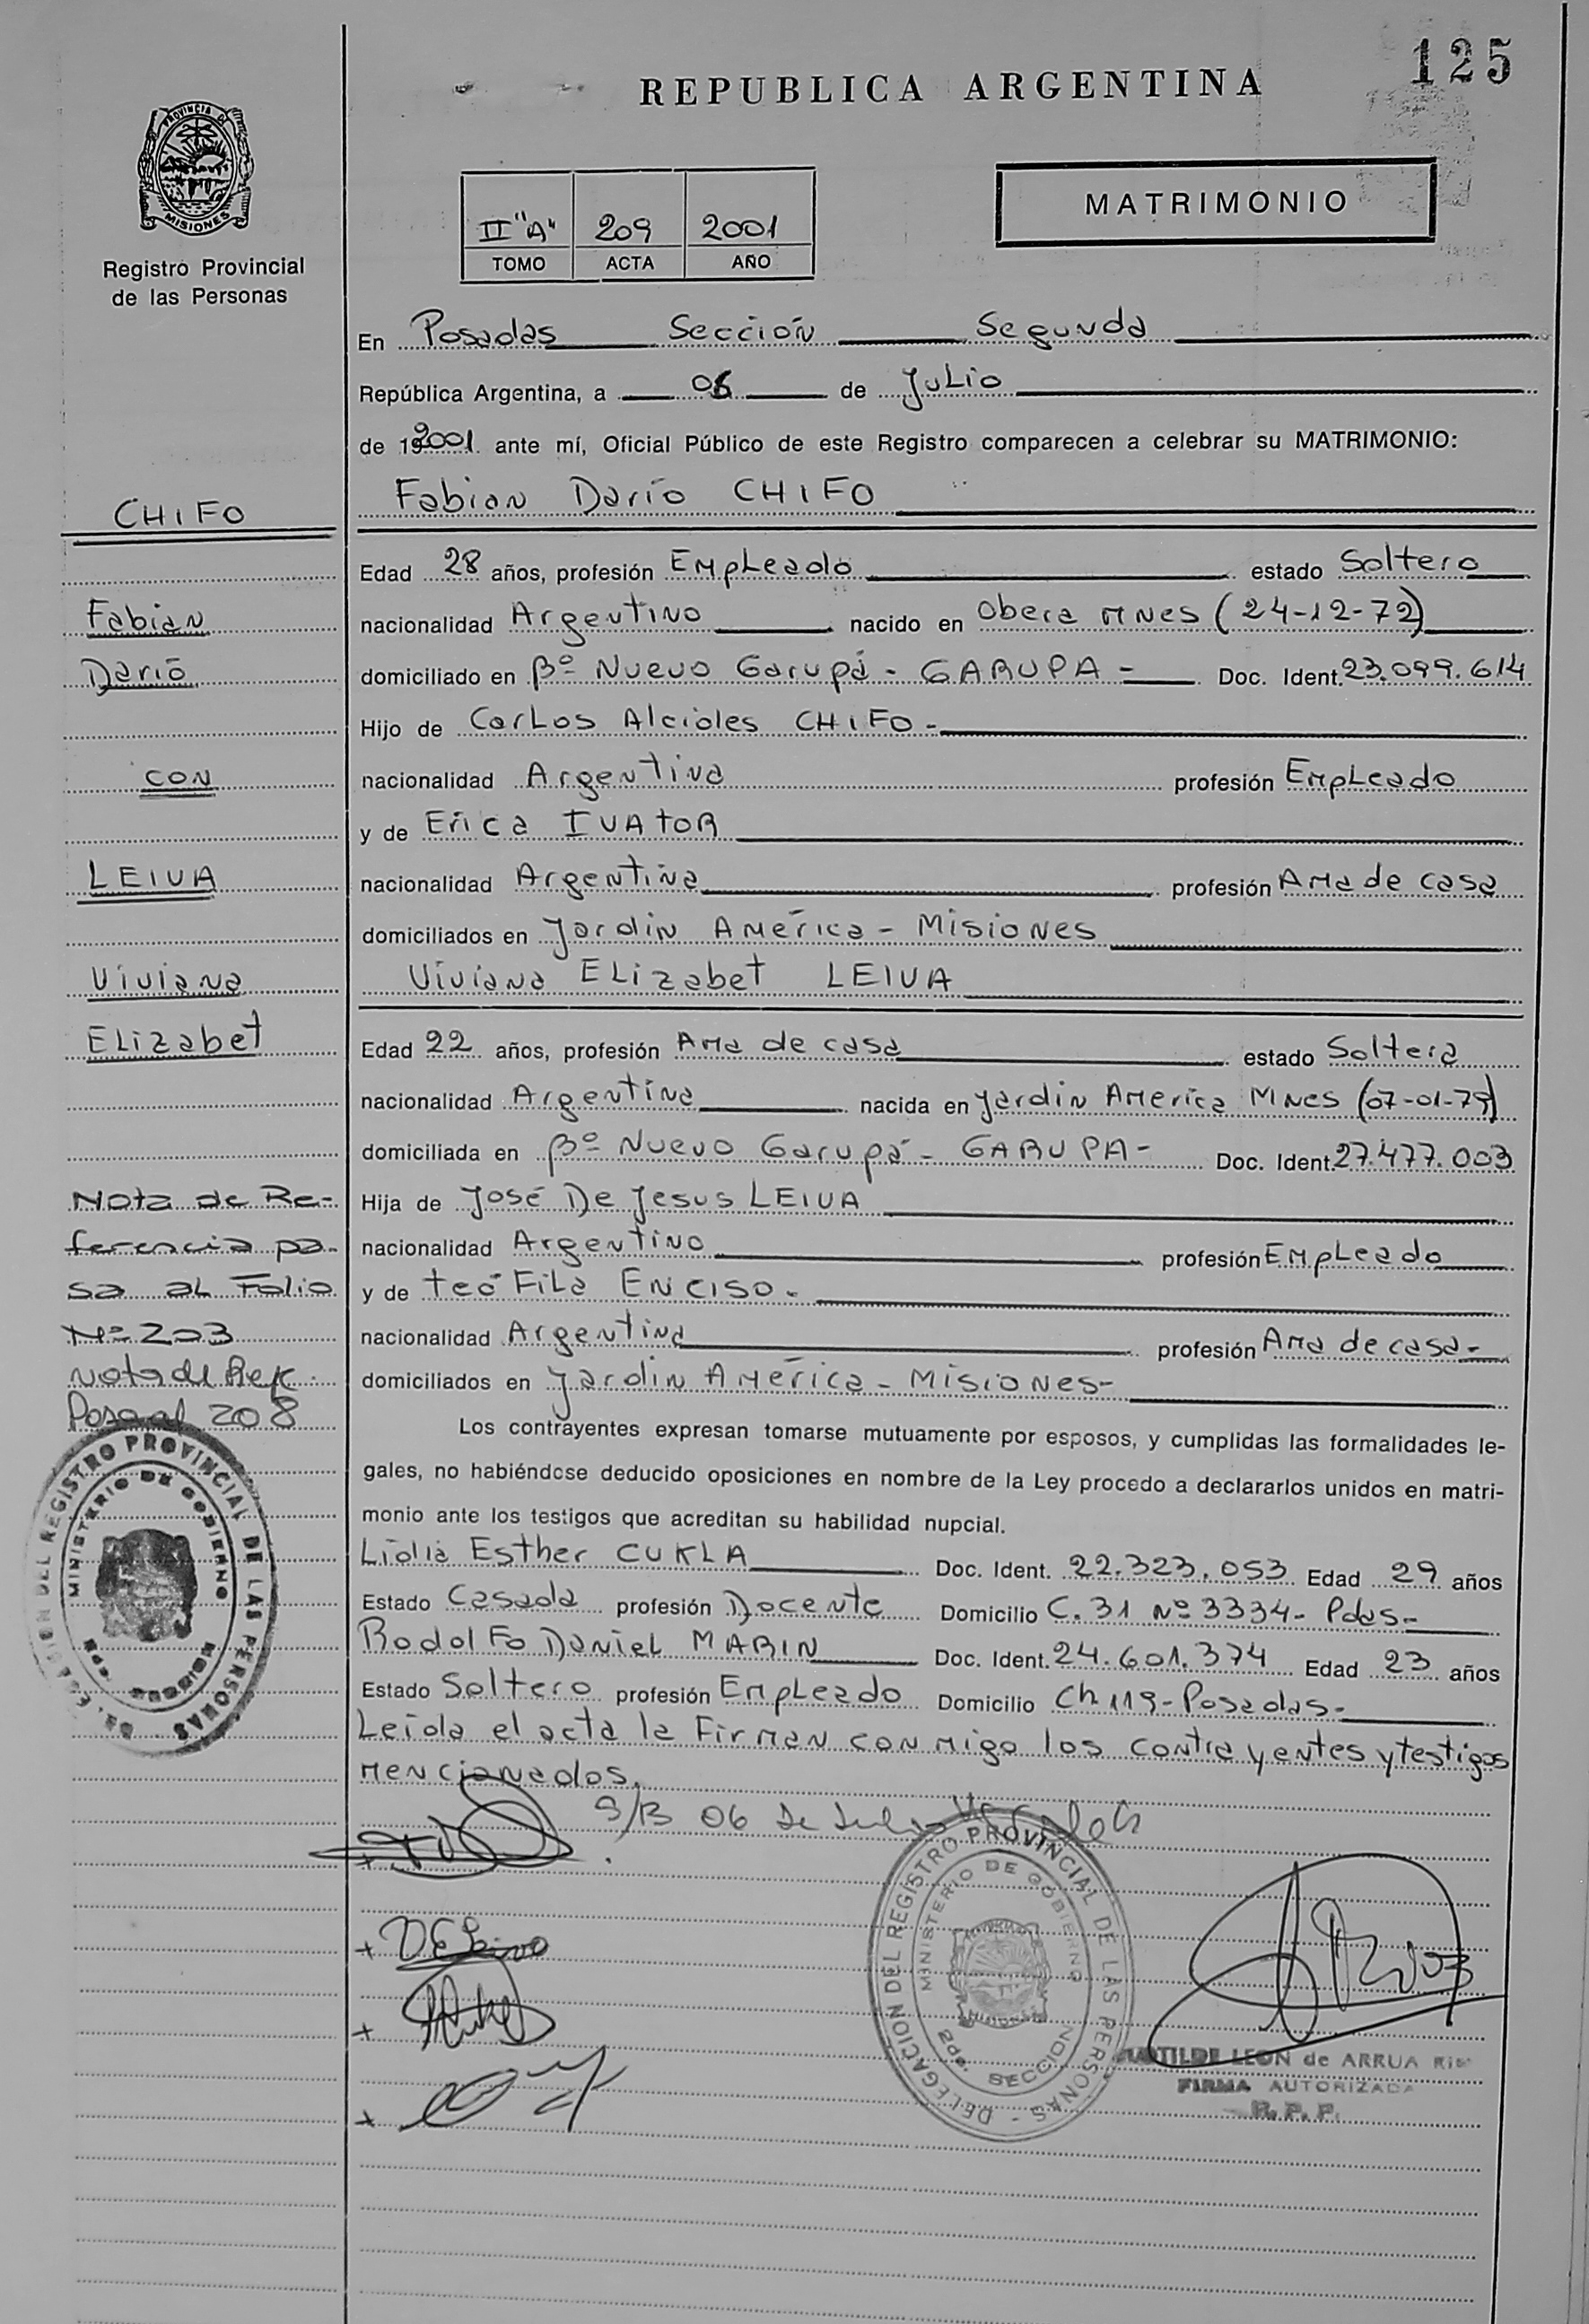 125
REPUBLICA ARGENTINA
PROVINCIA D
MISIONES
Registro Provincial
de las Personas
II "A" 209 2001
TOMO ACTA AÑO
MATRIMONIO
En Posadas Sección Segunda
República Argentina, a 06 de Julio
de 192001 ante mí, Oficial Público de este Registro comparecen a celebrar su MATRIMONIO:
Fabian Darío CHIFO
Edad 28 años, profesión Empleado estado Soltero
nacionalidad Argentino nacido en Obera Mnes (24-12-72)
domiciliado en Bº Nuevo Garupá - GARUPA - Doc. Ident. 23.099.614
Hijo de Carlos Alcioles CHIFO -
nacionalidad Argentina profesión Empleado
y de Erica IVATOR
nacionalidad Argentina profesión Ama de casa
domiciliados en Jardin América - Misiones
Viviana Elizabet LEIVA
Edad 22 años, profesión Ama de casa estado Soltera
nacionalidad Argentina nacida en Jardin America Mnes (07-01-79)
domiciliada en Bº Nuevo Garupá - GARUPA - Doc. Ident. 27.477.003
Hija de José De Jesus LEIVA
nacionalidad Argentino profesión Empleado
y de Teófila ENCISO -
nacionalidad Argentina profesión Ama de casa -
domiciliados en Jardin América - Misiones -
Los contrayentes expresan tomarse mutuamente por esposos, y cumplidas las formalidades le-
gales, no habiéndose deducido oposiciones en nombre de la Ley procedo a declararlos unidos en matri-
monio ante los testigos que acreditan su habilidad nupcial.
Lidia Esther CUKLA Doc. Ident. 22.323.053 Edad 29 años
Estado Casada profesión Docente Domicilio C. 31 Nº 3334 - Pdas -
Rodolfo Daniel MARIN Doc. Ident. 24.601.374 Edad 23 años
Estado Soltero profesión Empleado Domicilio Ch 119 - Posadas -
Leida el acta la Firman conmigo los contrayentes y testigos
mencionados.
S/B 06 de Julio
CHIFO
Fabian
Darió
CON
LEIVA
Viviana
Elizabet
Nota de Re-
ferencia pa-
sa al Folio
Nº 203
Nota de Ref.
Pasa al 208
DEL REGISTRO PROVINCIAL DE LAS PERSONAS
MINISTERIO DE GOBIERNO
DELEGACION DEL REGISTRO PROVINCIAL DE LAS PERSONAS
MINISTERIO DE GOBIERNO
MISIONES
2da. SECCION
LEON de ARRUA
FIRMA AUTORIZADA
R. P. P.